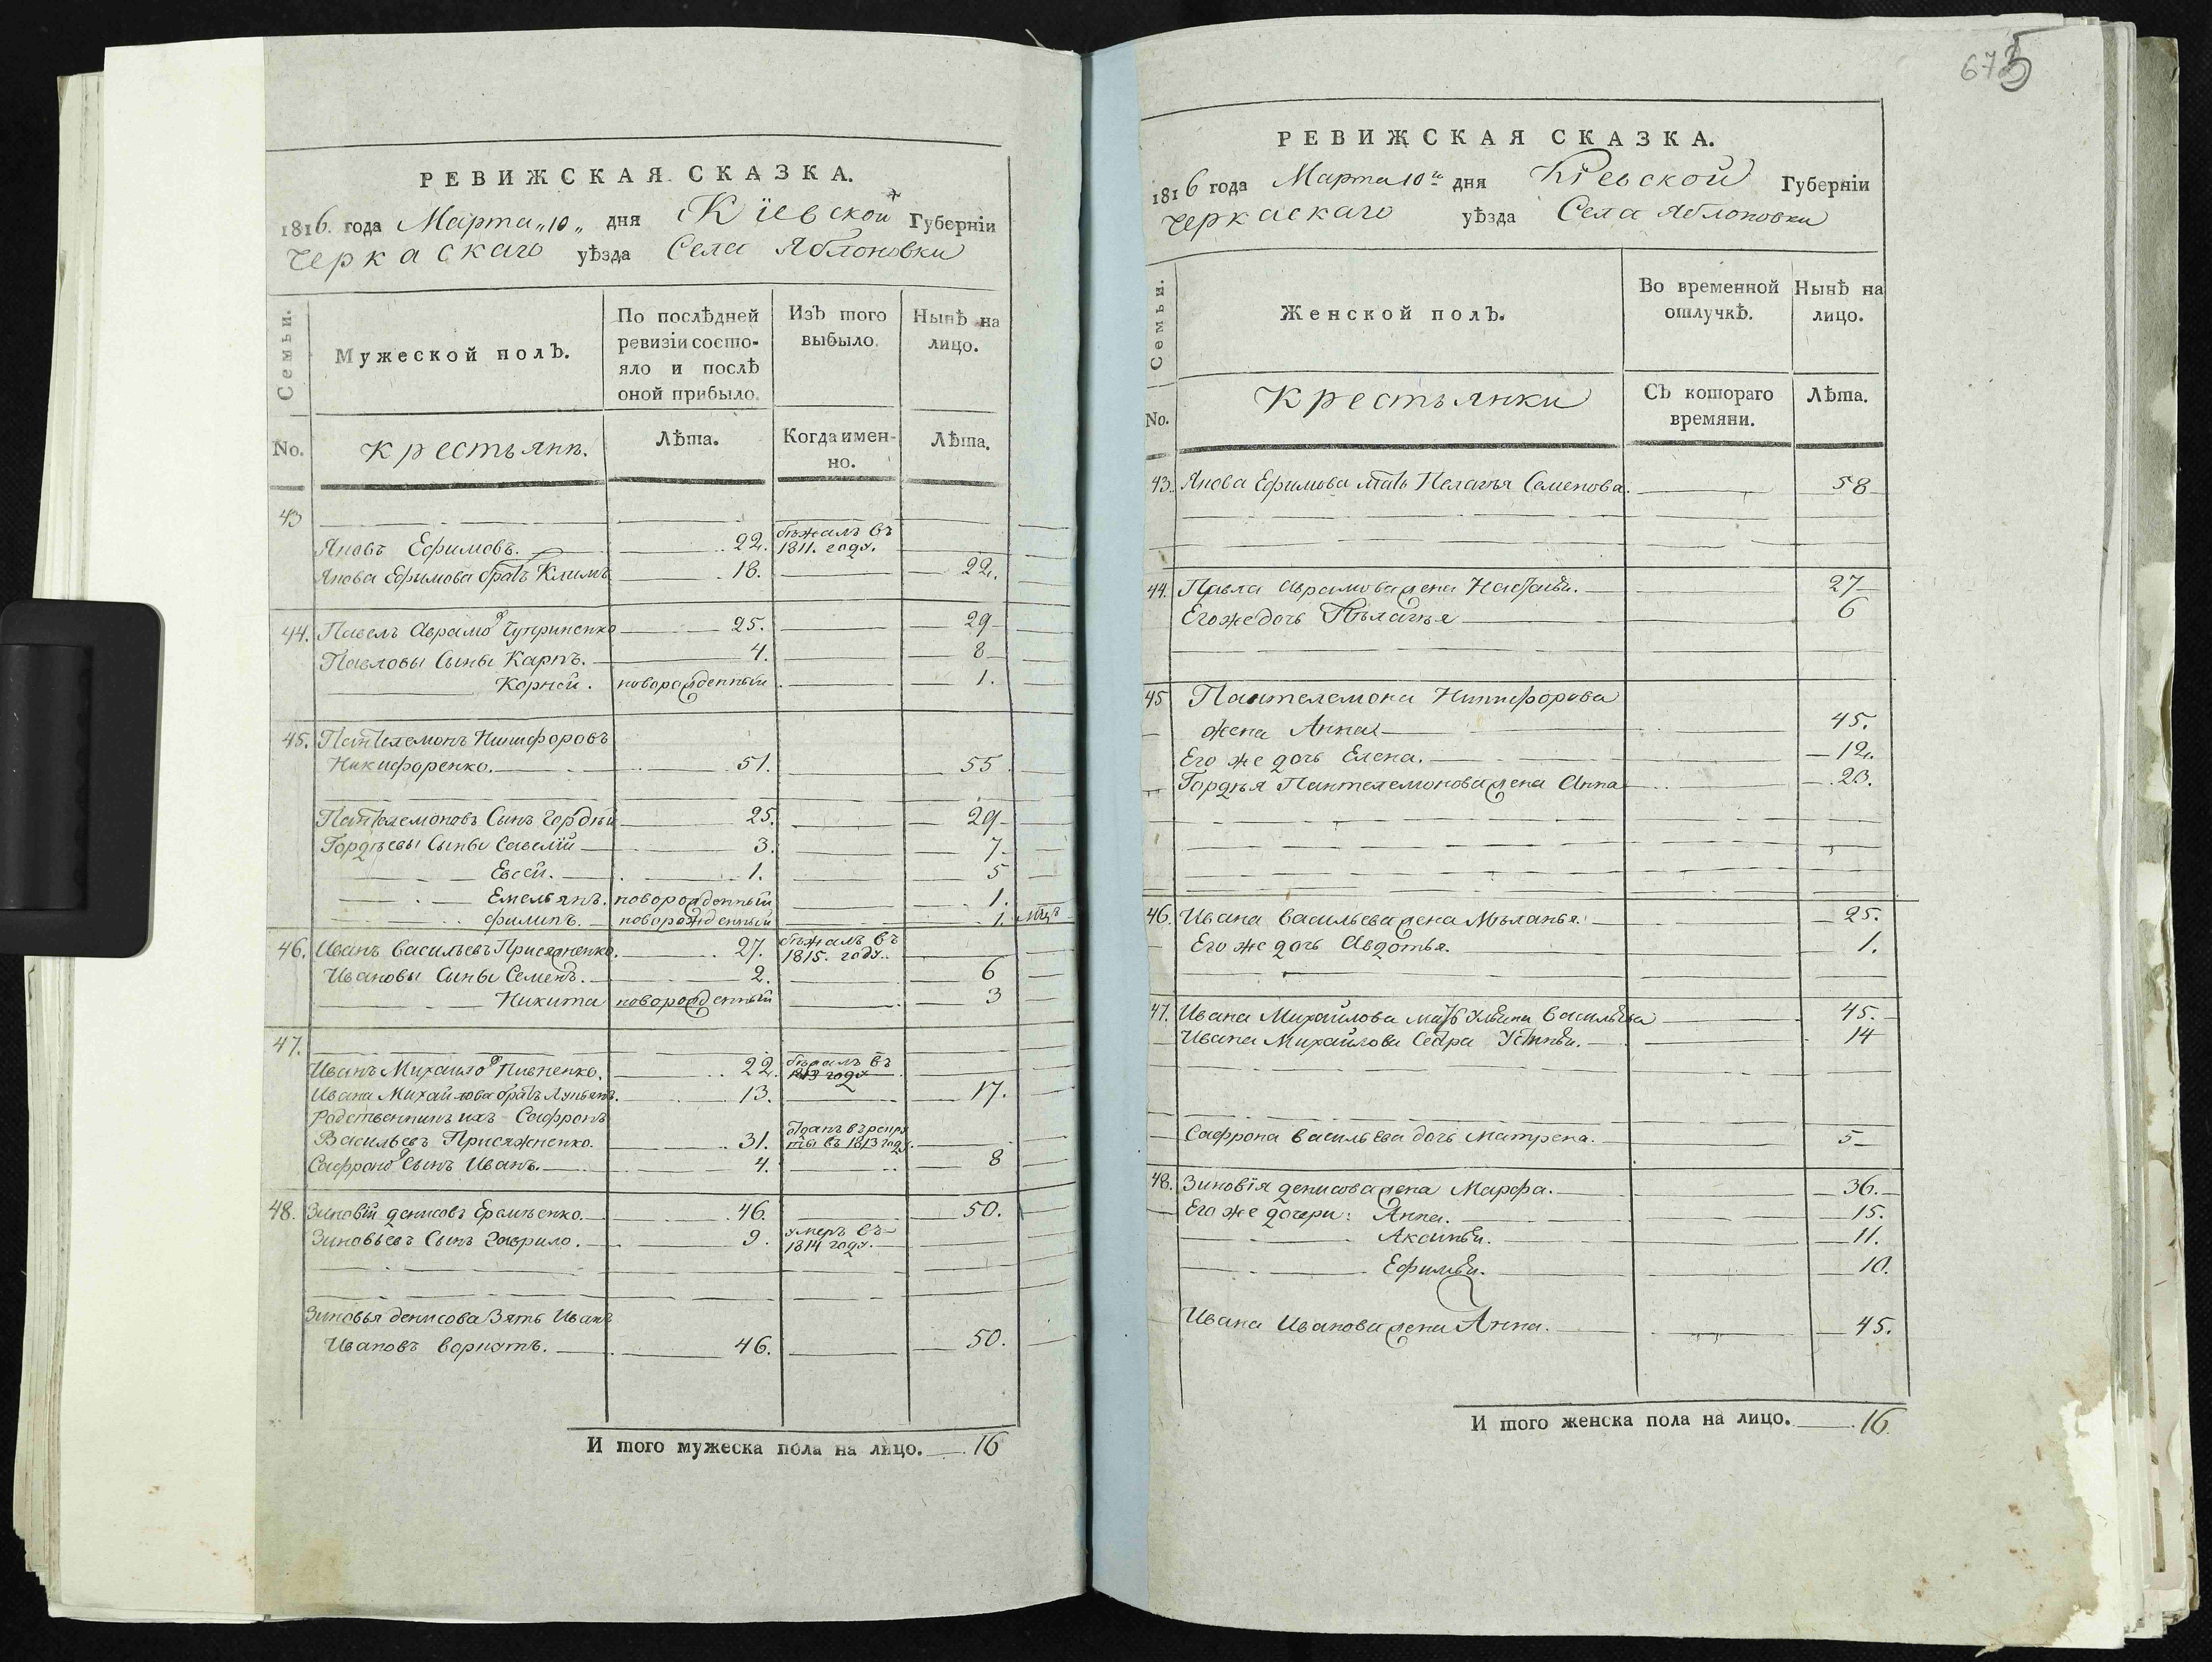 675
РЕВИЖСКАЯ СКАЗКА.
1816. года Марта „10„ дня Кіевской Губерніи
Черкаскаго уѣзда Села Яблоновки
Семьи.
Мужеской полЪ.
По послѣдней ревизіи состо-
яло и послѣ
оной прибыло.
ИзЪ того
выбыло.
Нынѣ на
лицо.
No.
Крестьянъ.
Лѣта.
Когда имен-
но.
Лѣта.
43
Яковъ Ефимовъ. 22. бѣжалъ въ
1811. году.
Якова Ефимова братъ Климъ 18. 22.
44. Павелъ Аврамовъ Чуприненко 25. 29
Павловы Сыны Карпъ. 4. 8
Корней. новорожденный 1.
45. Пантелемонъ Никифоровъ
Никифоренко. 51. 55
Пантелемоновъ Сынъ Гордѣй 25. 29
Гордѣевы Сыны Савелій 3. 7
Евсей. 1. 5
Емельянъ. новорожденный 1.
Филипъ. новорожденный 1.
46. Иванъ Васильевъ Присяжненко. 27. бѣжалъ въ
1815. году.
Ивановы Сыны Семенъ. 2. 6
Никита новорожденный 3
47.
Иванъ Михайловъ Пивненко. 22. бѣжалъ въ
1813 году
Ивана Михайлова братъ Лукьянъ. 13. 17.
Родственникъ ихъ Сафронъ
Васильевъ Присяжненко. 31. отданъ въ рекру
ты въ 1813 году.
Сафроновъ Сынъ Иванъ. 4. 8
48. Зиновій Денисовъ 46. 50.
Зиновьевъ Сынъ Гаврило. 9. умеръ въ
1814 году.
Зиновья Денисова Зять Иванъ
Ивановъ 46. 50.
И того мужеска пола на лицо. 16
РЕВИЖСКАЯ СКАЗКА.
1816 года Марта 10го дня Кіевской Губерніи
Черкаскаго уѣзда Села Яблоновки
Семьи.
Женской полЪ.
Во временной
отлучкѣ.
Нынѣ на
лицо.
No.
Крестьянки
СЪ котораго
времяни.
Лѣта.
43. Якова Ефимова мать Пелагья Семенова. 58
44. Павла Аврамова жена Настасья. 27
Его же дочь Пѣлагѣя 6
45 Пантелемона Никифорова
жена Анна 45.
Его же дочь Елена. 12.
Гордѣя Пантелемонова жена Анна 23.
46. Ивана Васильева жена Мѣланья. 25.
Его же дочь Авдотья. 1.
47. Ивана Михайлова мать Ульяна Васильева 45.
Ивана Михайлова Сестра Устинья. 14
Сафрона Васильева дочь Матрена. 5
48. Зиновія Денисова жена Марфа. 36.
Его же дочери: Анна. 15.
Аксинья. 11.
Ефимья. 10.
Ивана Иванова жена Анна. 45.
И того женска пола на лицо. 16